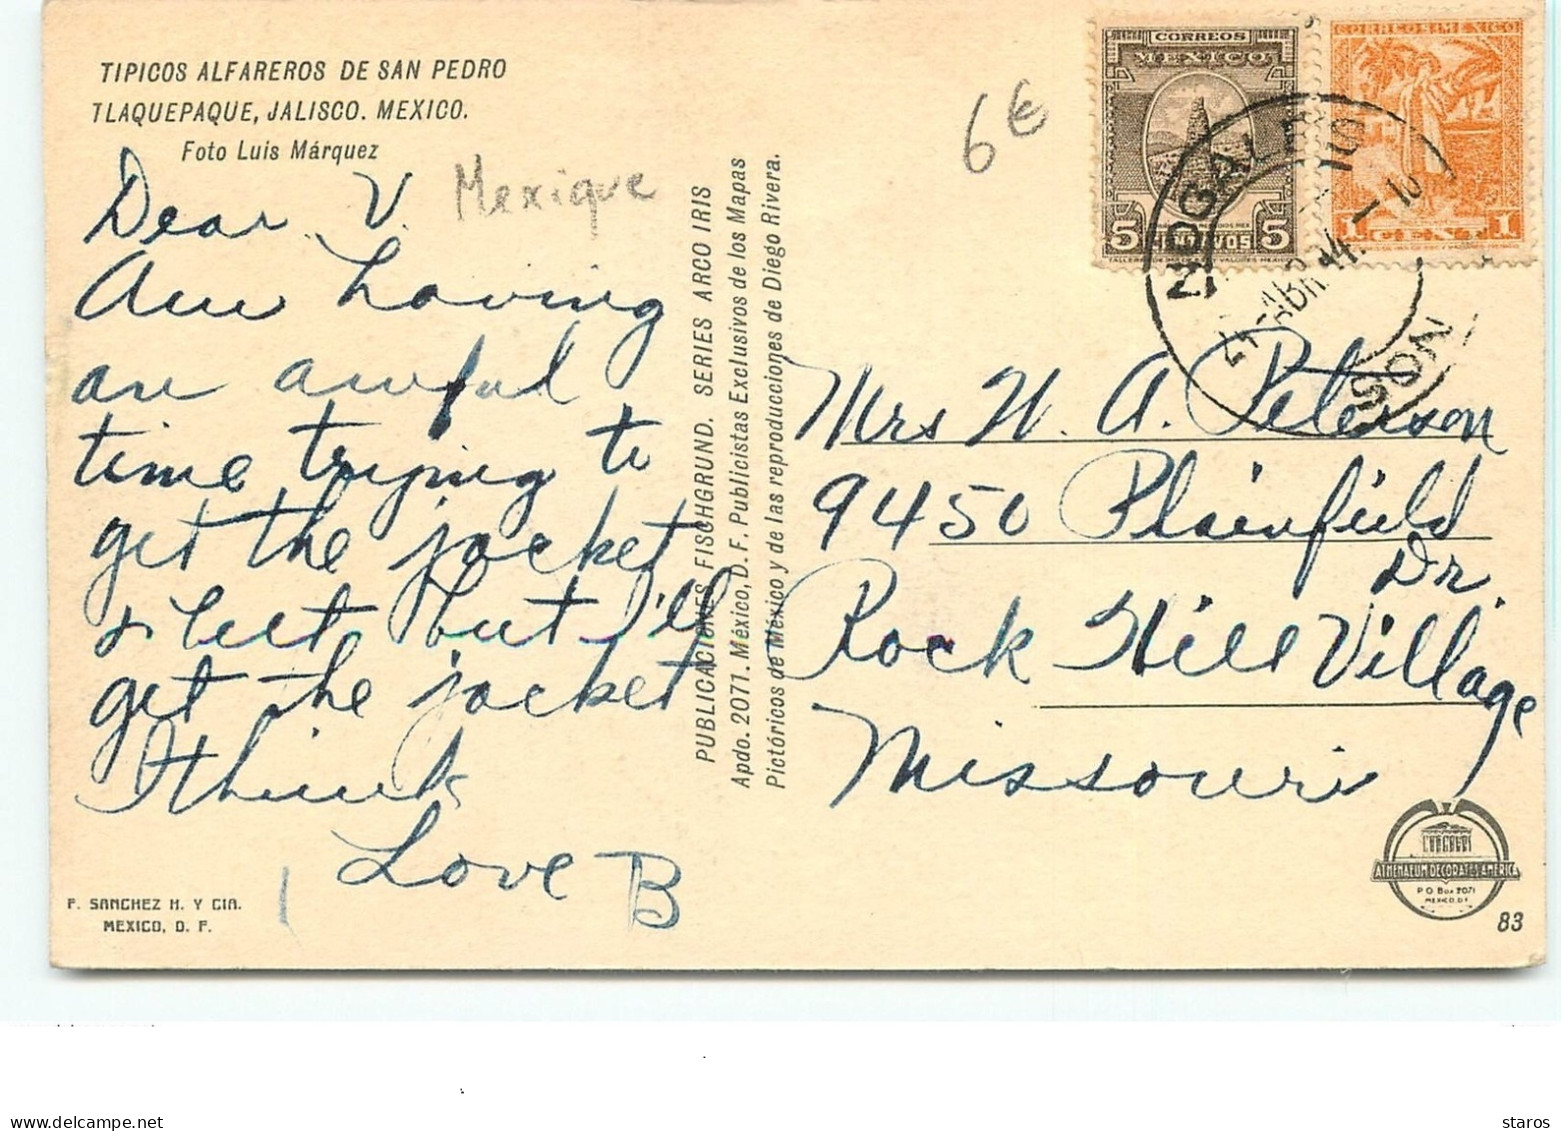 TIPICOS ALFAREROS DE SAN PEDRO
TLAQUEPAQUE, JALISCO. MEXICO.
Foto Luis Márquez
Mexique
6€
Dear V.
Am having
an awful
time trying to
get the jacket
& belt but i'll
get the jacket
I think
Love B
F. SANCHEZ H. Y CIA.
MEXICO, D. F.
PUBLICACIONES FISCHGRUND. SERIES ARCO IRIS
Apdo. 2071. México, D. F. Publicistas Exclusivos de los Mapas
Pictóricos de México y de las reproducciones de Diego Rivera.
CORREOS
MEXICO
5 CENTAVOS 5
CORREOS MEXICO
1 CENT 1
NOGALES
ABR
SON
Mrs W. A. Peterson
9450 Plainfield
Dr.
Rock Hill Village
Missouri
ATHENAEUM DECORATES AMERICA
P O Box 2071
MEXICO. D F
83
staros